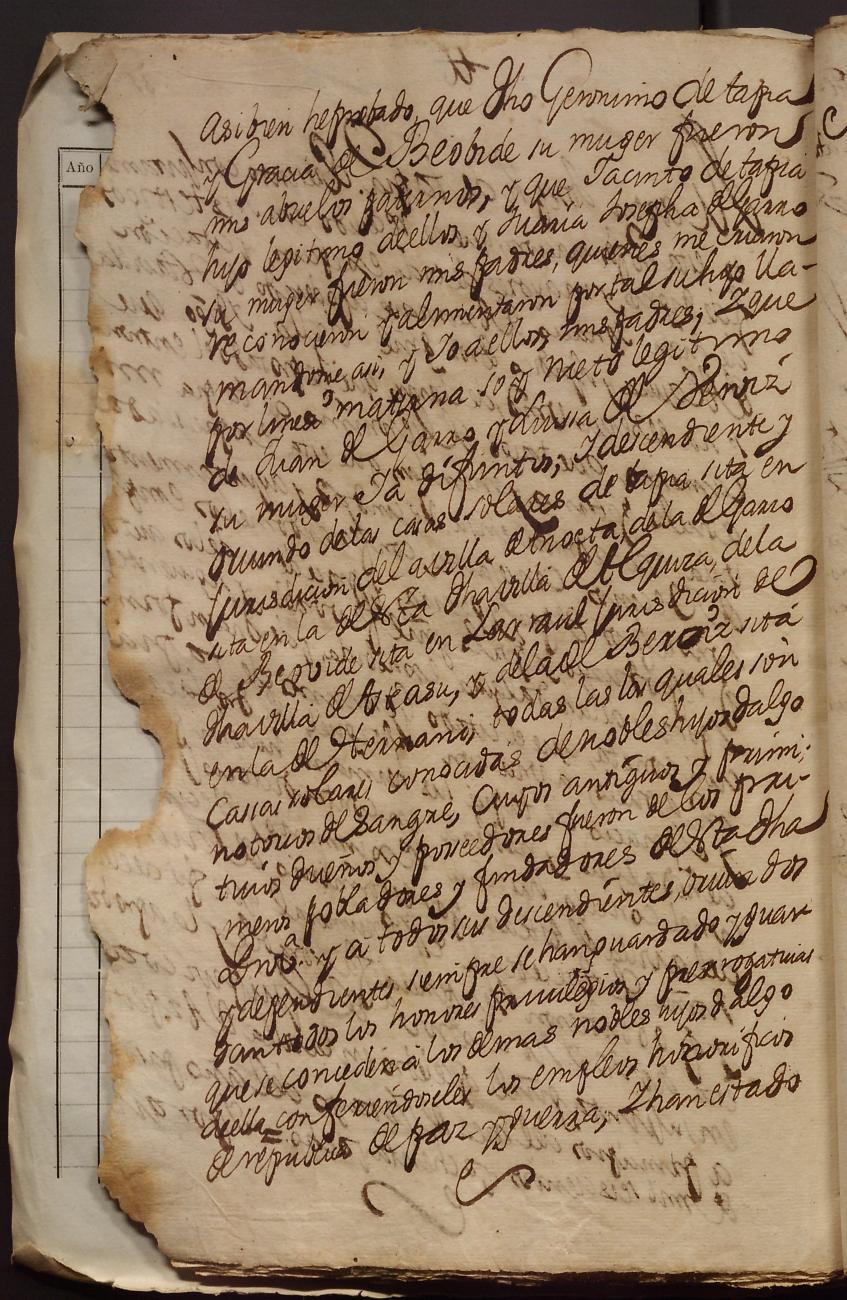 Año
asi bien he probado, que dho Geronimo de tapia
y Gracia de Beobide su muger fueron
mis abuelos paternos, y que Jacinto de tapia
hijo legitimo de ellos y Maria Josepha de Garro
su muger fueron mis padres, quienes me criaron
reconocieron y alimentaron por tal su hijo lla-
mandome asi, y Yo a ellos mis padres, Y que
por linea materna soy nieto legitimo
de Juan de Garro, y Luisa de Beroiz
su muger Ya difuntos, y descendiente y
oriundo de las casas solares de tapia sita en
Jurisdicion de la villa de Anoeta, de la de Garro
sita en la de esta dha villa de Alquiza, de la
de Beovide sita en Larraul Jurisdicion de
dha villa de Asteasu, y de la de Beroiz sita
en la de Hernani, todas las quales son
Casas solares conocidas de nobles hijos dalgo
notorios de Sangre, Cuyos antiguos y primi-
tivos dueños y poseedores fueron de los pri-
meros pobladores y fundadores de esta dha
y a todos sus descendientes, oriundos
y dependientes siempre se han guardado y guar
dan todos los honores privilegios y prerrogativas
que se conceden a los demas nobles hijos dalgo
de ella confiriendoseles los empleos honorificos
de republica de paz y guerra, Y han estado